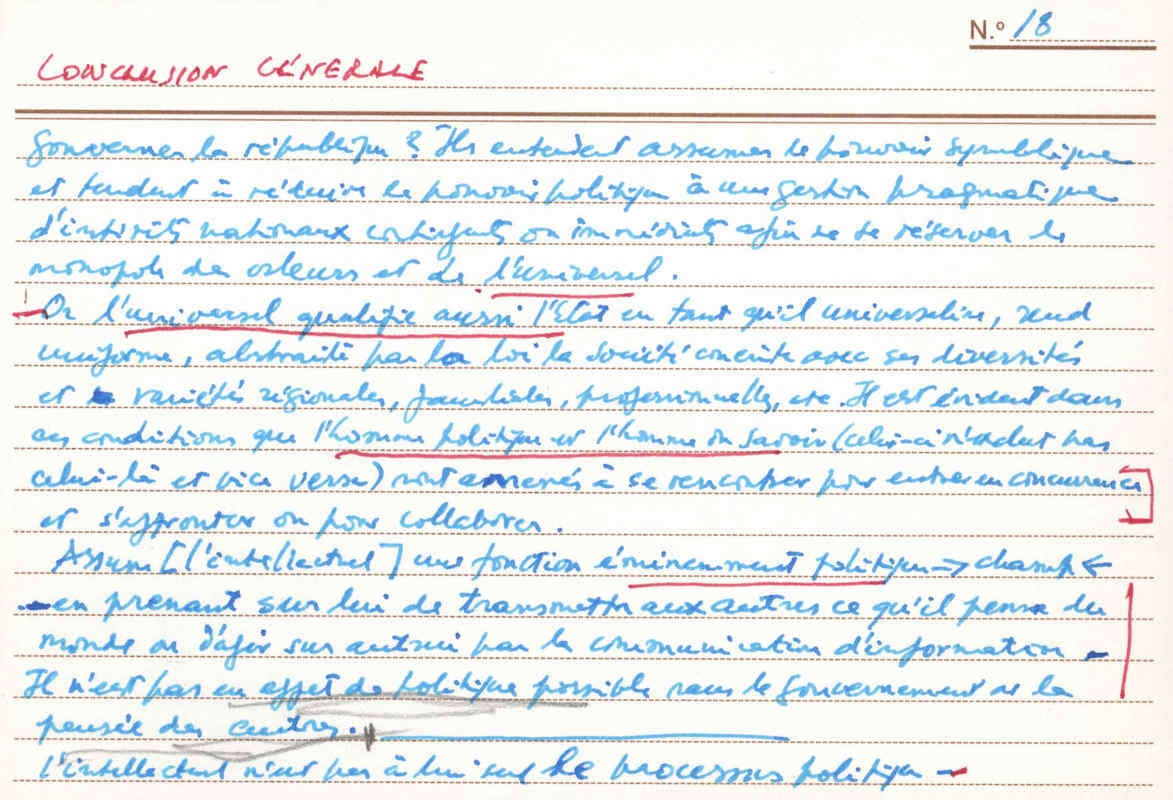 N.º 18
CONCLUSION GÉNÉRALE
Gouverner la république ? Ils entendent assumer le pouvoir symbolique
et tendent à réduire le pouvoir politique à une gestion pragmatique
d'intérêts nationaux contingents ou immédiats afin de se réserver le
monopole des valeurs et de l'universel.
Or l'universel qualifie aussi l'Etat en tant qu'il universalise, rend
uniforme, abstraité par la loi la société concrète avec ses diversités
et variétés régionales, familiales, professionnelles, etc. Il est évident dans
ces conditions que l'homme politique et l'homme du savoir (celui-ci n'exclut pas
celui-là et vice versa) sont amenés à se rencontrer pour entrer en concurrence
et s'affronter ou pour collaborer.
Assume [l'intellectuel] une fonction éminemment politique => champ <
- en prenant sur lui de transmettre aux autres ce qu'il pense du
monde ou d'agir sur autrui par la communication d'information -
Il n'est pas en effet de politique possible sans le gouvernement de la
pensée des autres.
l'intellectuel n'est pas à lui seul le processus politique -